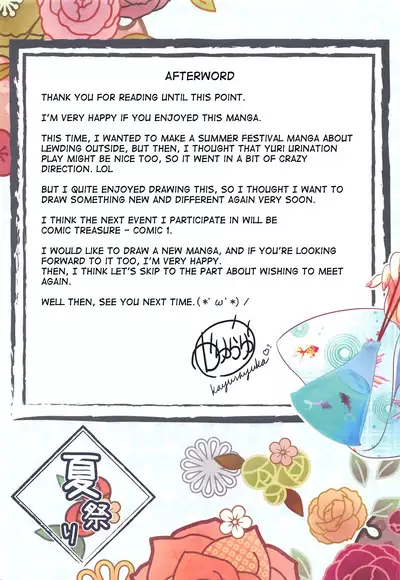 AFTERWORD
THANK YOU FOR READING UNTIL THIS POINT.
I'M VERY HAPPY IF YOU ENJOYED THIS MANGA.
THIS TIME, I WANTED TO MAKE A SUMMER FESTIVAL MANGA ABOUT
LEWDING OUTSIDE, BUT THEN, I THOUGHT THAT YURI URINATION
PLAY MIGHT BE NICE TOO, SO IT WENT IN A BIT OF CRAZY
DIRECTION. LOL
BUT I QUITE ENJOYED DRAWING THIS, SO I THOUGHT I WANT TO
DRAW SOMETHING NEW AND DIFFERENT AGAIN VERY SOON.
I THINK THE NEXT EVENT I PARTICIPATE IN WILL BE
COMIC TREASURE - COMIC 1.
I WOULD LIKE TO DRAW A NEW MANGA, AND IF YOU'RE LOOKING
FORWARD TO IT TOO, I'M VERY HAPPY.
THEN, I THINK LET'S SKIP TO THE PART ABOUT WISHING TO MEET
AGAIN.
WELL THEN, SEE YOU NEXT TIME.(*'ω'*)/
夏祭り